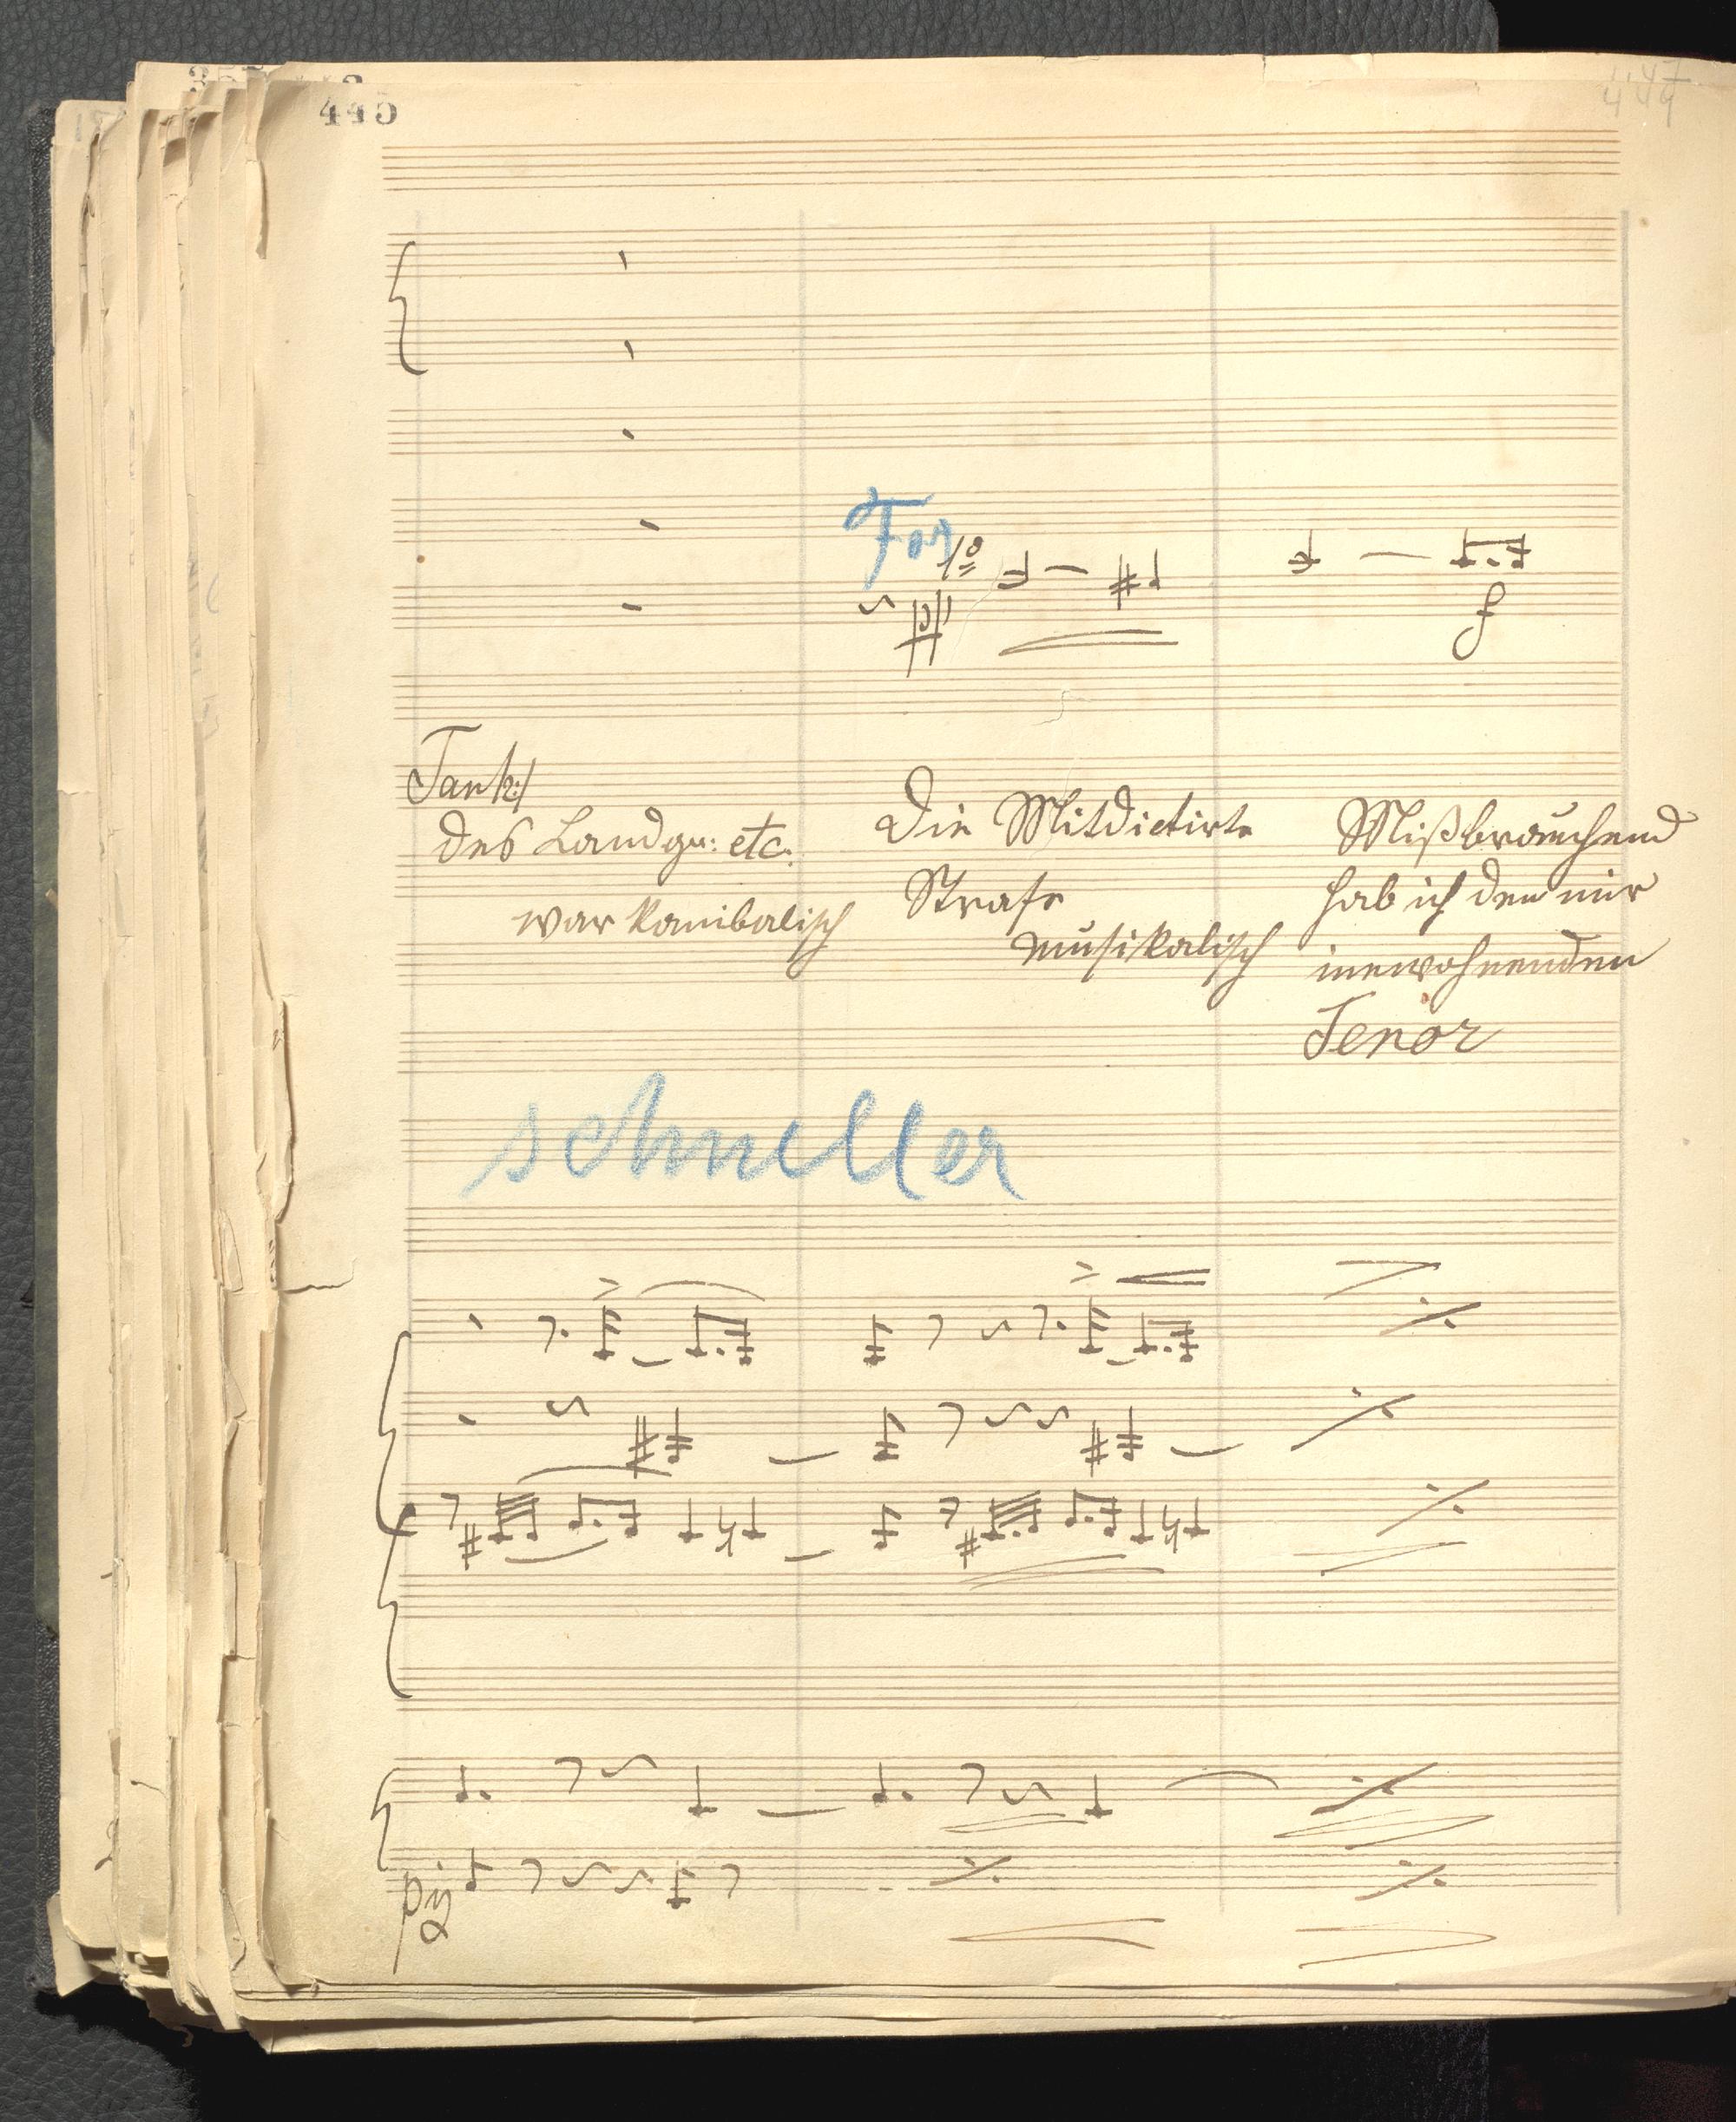 445
447
449
Fag
1º
ppp
f
Tank:/
des Landgr: etc.
war kanibalisch
Die Mitdictirte
Strafe
musikalisch
Mißbrauchend
hab ich den mir
inewohnenden
Tenor
schneller